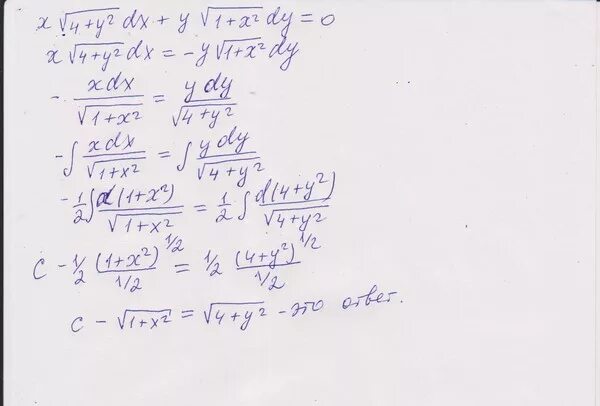 x √(4+y²) dx + y √(1+x²) dy = 0
x √(4+y²) dx = -y √(1+x²) dy
- xdx / √(1+x²) = y dy / √(4+y²)
- ∫ xdx / √(1+x²) = ∫ y dy / √(4+y²)
- ½ ∫ d(1+x²) / √(1+x²) = ½ ∫ d(4+y²) / √(4+y²)
C - ½ (1+x²)^(1/2) / (1/2) = ½ (4+y²)^(1/2) / (1/2)
c - √(1+x²) = √(4+y²) - это ответ.